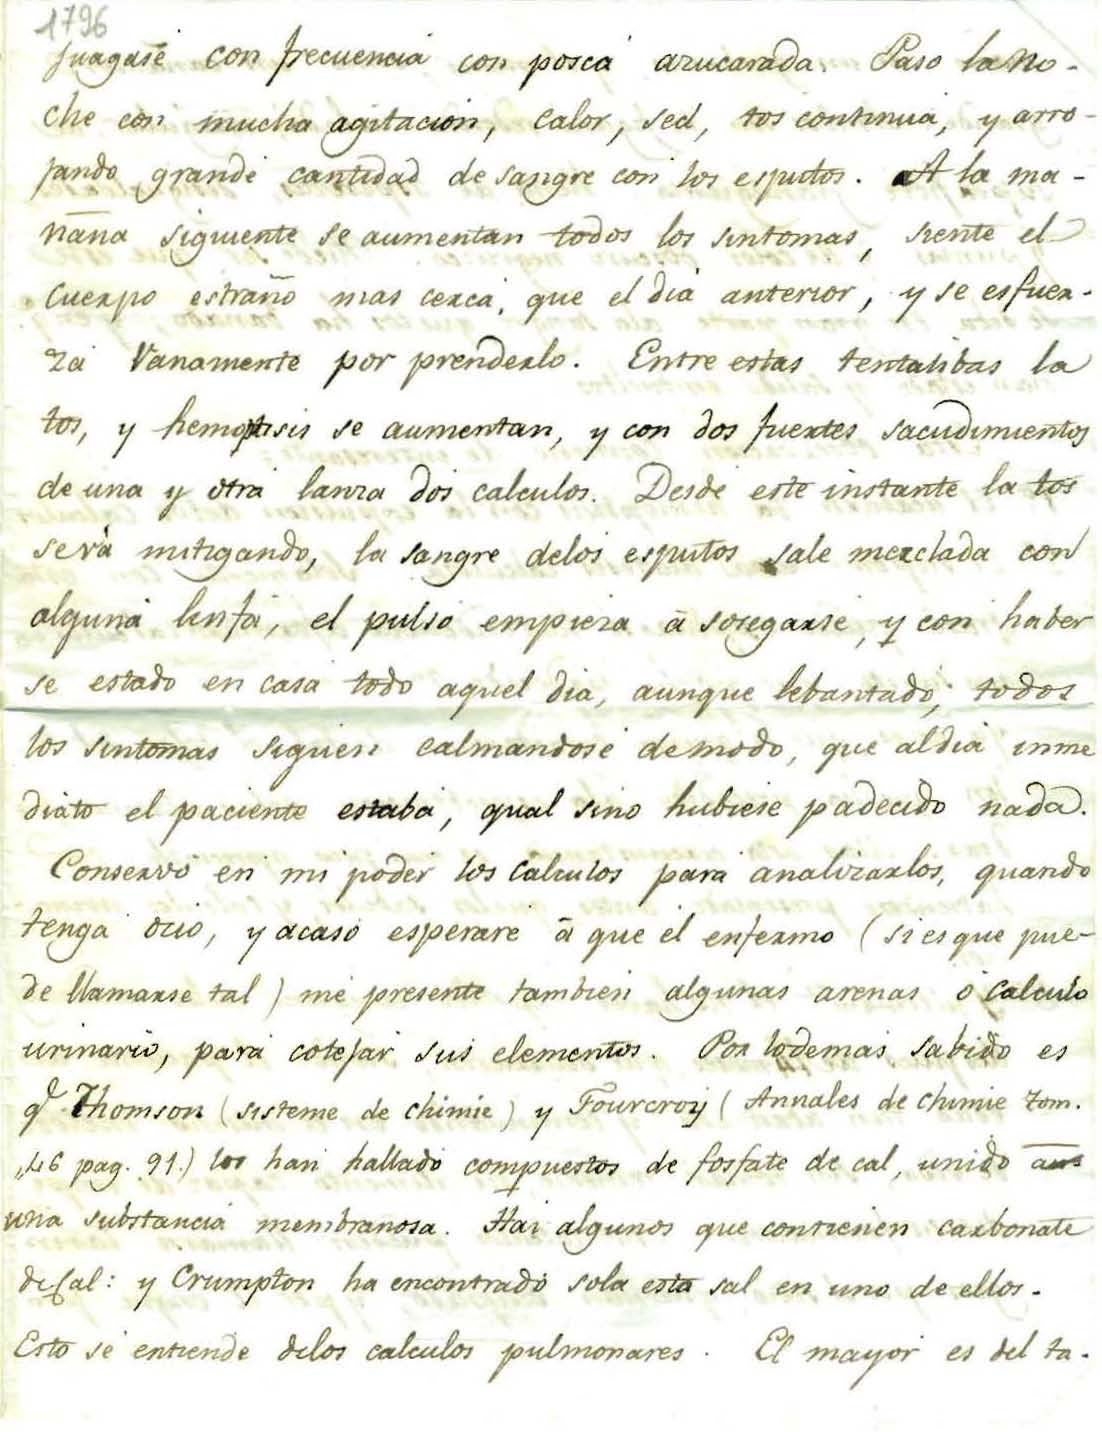 1796
juagase con frecuencia con posca azucarada. Paso la no-
che con mucha agitacion, calor, sed, tos continua, y arro-
jando grande cantidad de sangre con los esputos. A la ma-
ñana siguiente se aumentan todos los sintomas, siente el
cuerpo estraño mas cerca, que el dia anterior, y se esfuer-
za vanamente por prenderlo. Entre estas tentatibas la
tos, y hemoptisis se aumentan, y con dos fuertes sacudimientos
de una y otra lanza dos calculos. Desde este instante la tos
se va mitigando, la sangre delos esputos sale mezclada con
alguna linfa, el pulso empieza à sosegarse, y con haber
se estado en casa todo aquel dia, aunque lebantado; todos
los sintomas siguen calmandose demodo, que aldia inme
diato el paciente estaba, qual sino hubiese padecido nada.
Conservo en mi poder los calculos para analizarlos, quando
tenga ocio, y acaso esperare à que el enfermo (si es que pue-
de llamarse tal) me presente tambien algunas arenas ò calculo
urinario, para cotejar sus elementos. Por lodemas sabido es
q.e Thomson (sisteme de chimie) y Fourcroy (Annales de chimie tom.
46 pag. 91.) los han hallado compuestos de fosfate de cal, unido à
una substancia membranosa. Hai algunos que contienen carbonate
de cal: y Crumpton ha encontrado sola esta sal en uno de ellos.
Esto se entiende delos calculos pulmonares. El mayor es del ta-